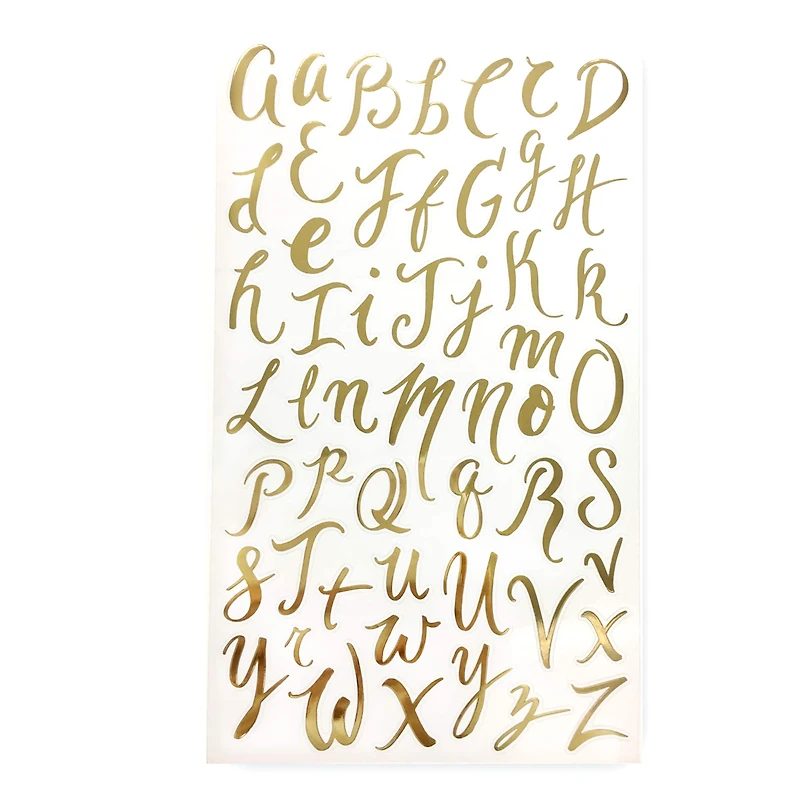 a a B b C c D
d E F f G g H
h e I i J j K k
L l n M n m o O
P p Q q R S
s T t u U V v
y r w W X y z Z x